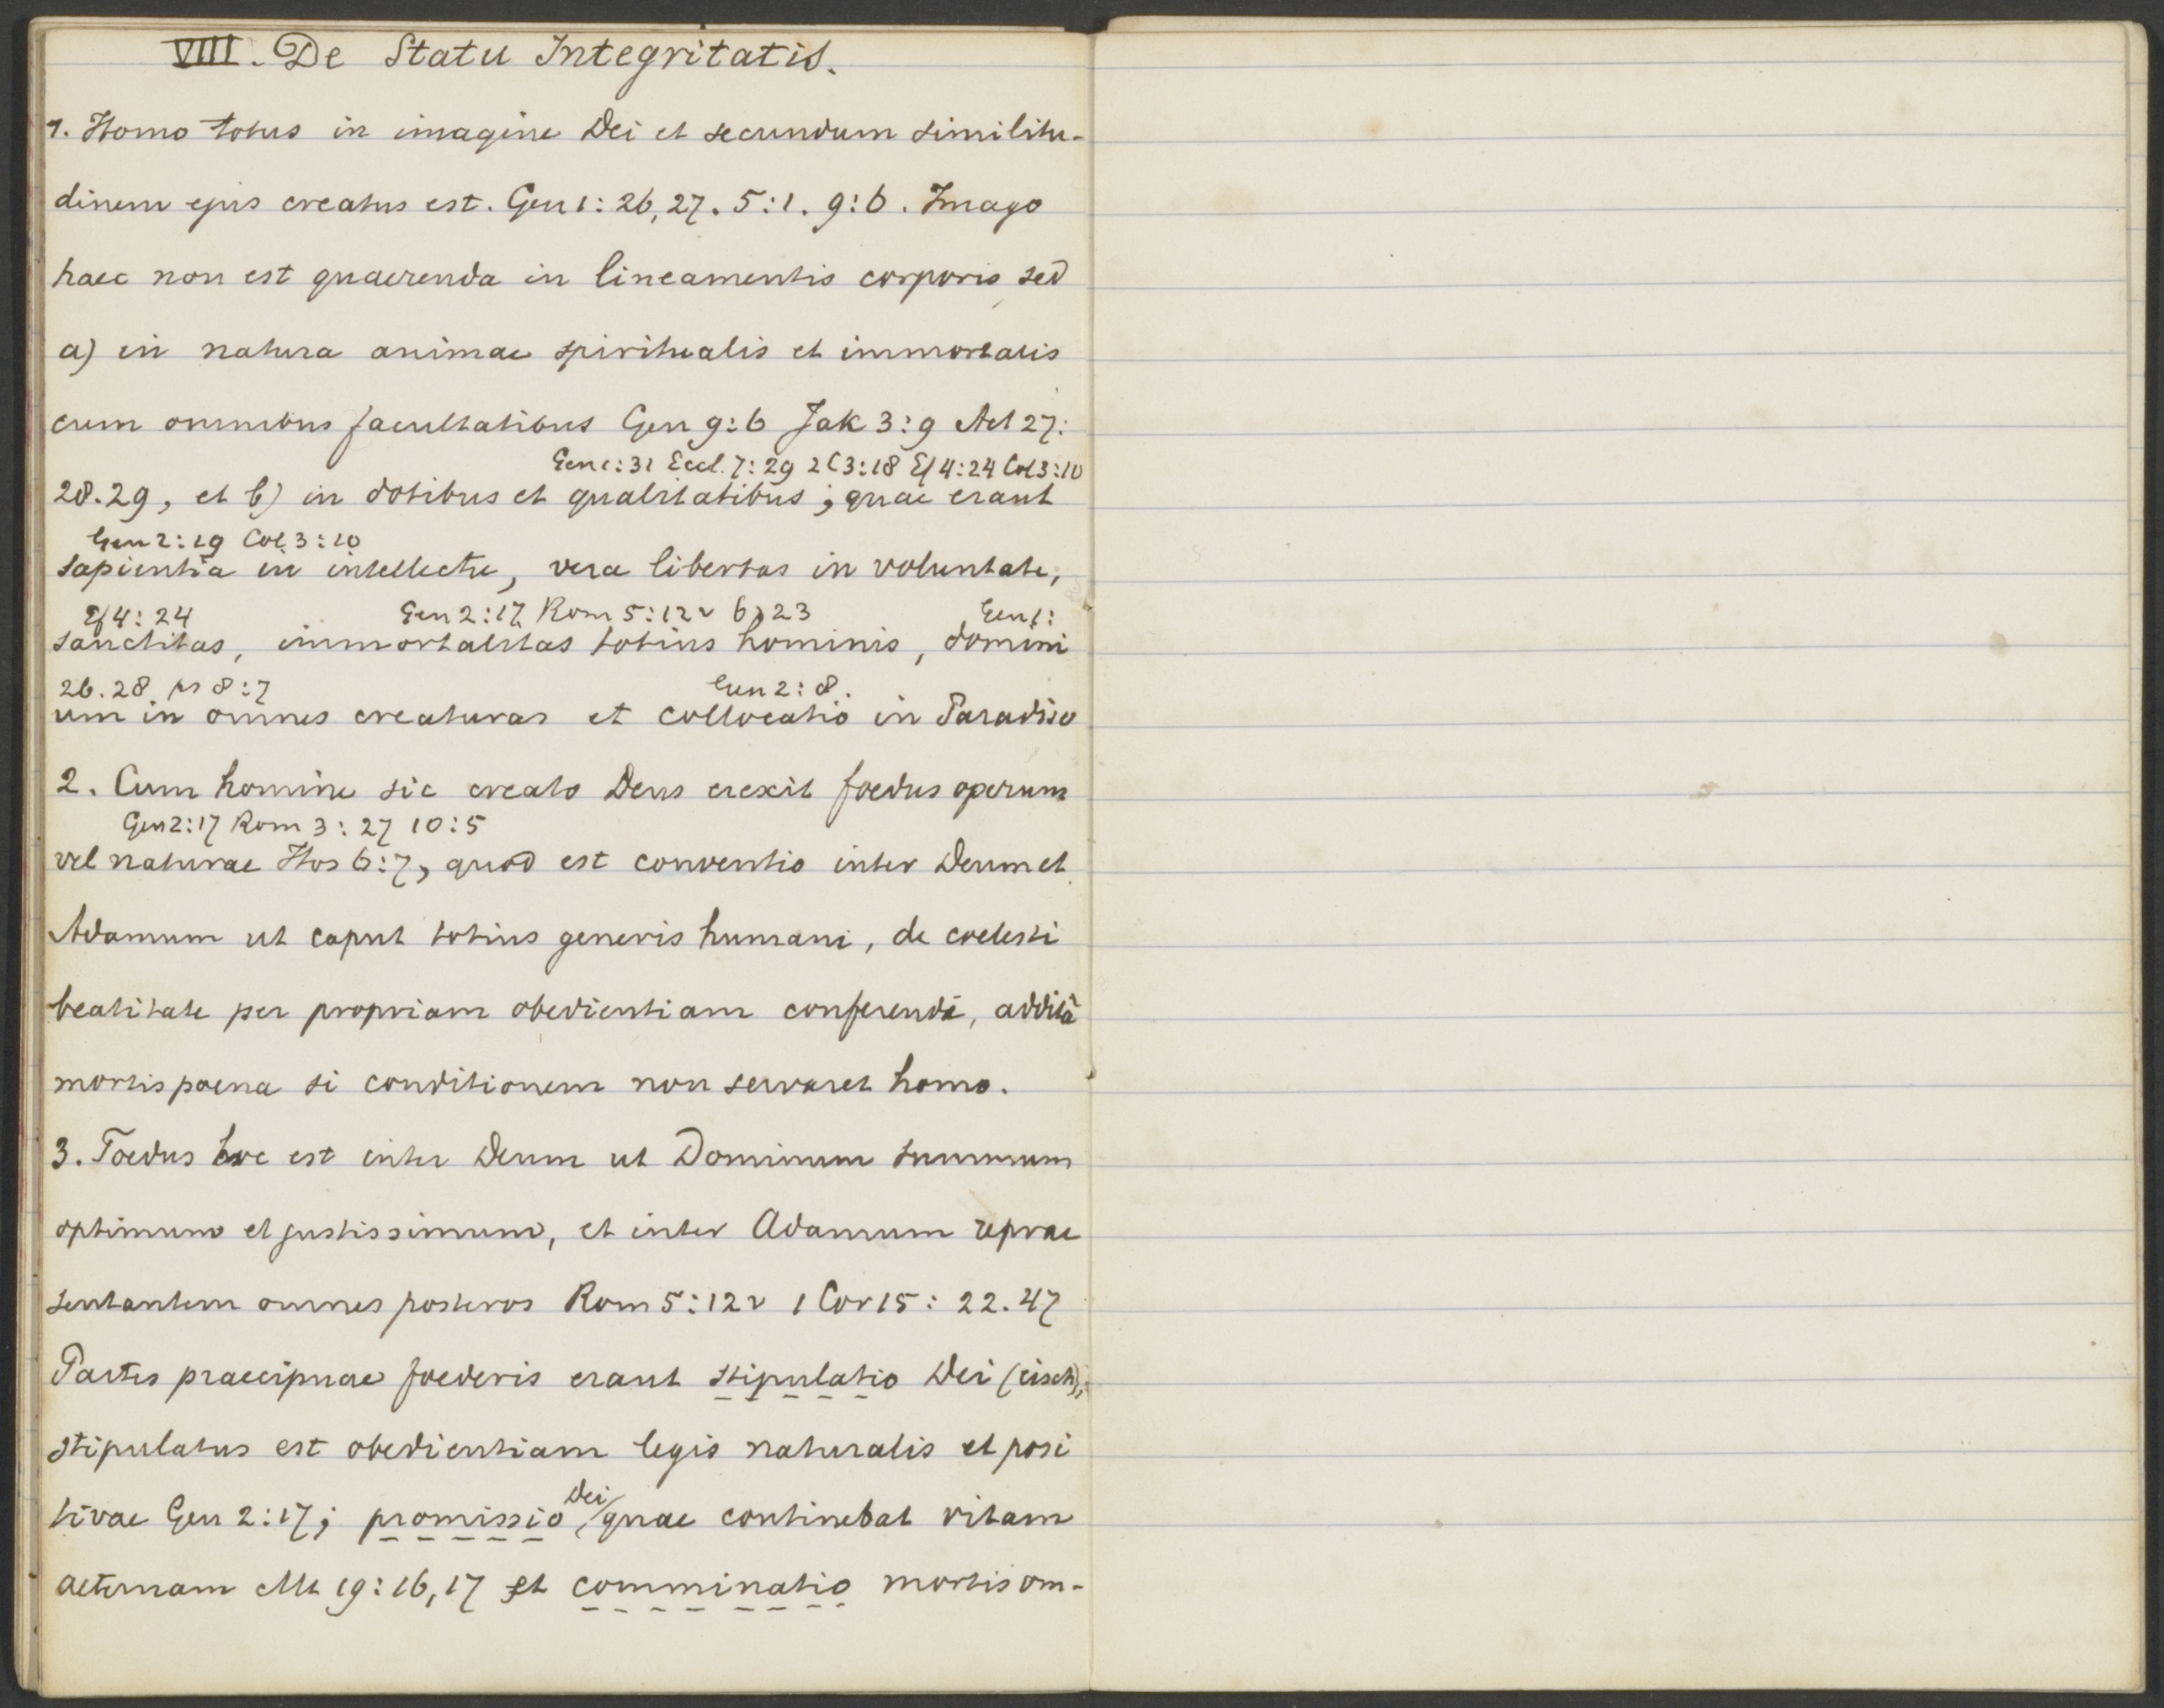 VIII. De Statu Integritatis.
1. Homo totus in imagine Dei et secundum similitu-
dinem ejus creatus est. Gen 1: 26, 27. 5:1. 9:6. Imago
haec non est quaerenda in lineamentis corporis sed
a) in natura animae spiritualis et immortalis
cum omnibus facultatibus Gen 9:6 Jak 3:9 Act 27:
Gen 1:31 Eccl. 7:29 2C3:18 Ef 4:24 Col 3:10
28.29, et b) in dotibus et qualitatibus; quae erant
Gen 2:19 Col. 3:10
sapientia in intellectu, vera libertas in voluntate,
Ef 4:24 Gen 2:17 Rom 5:12v 6:23 Gen 1:
sanctitas, immortalitas totius hominis, domini
26.28 ps 8:7 Gen 2:8.
um in omnes creaturas et collocatio in Paradiso
2. Cum homine sic creato Deus erexit foedus operum
Gen 2:17 Rom 3:27 10:5
vel naturae Hos 6:7, quod est conventio inter Deum et
Adamum ut caput totius generis humani, de coelesti
beatitate per propriam obedientiam conferendâ, additâ
mortis poena si conditionem non servaret homo.
3. Foedus hoc est inter Deum ut Dominum summum
optimum et justissimum, et inter Adamum reprae
sentantem omnes posteros Rom 5:12v 1 Cor 15: 22.47
Partes praecipuae foederis erant stipulatio Dei (eisch),
stipulatus est obedientiam legis naturalis et posi
tivae Gen 2:17; promissio Dei, quae continebat vitam
aeternam Mt 19:16,17 et comminatio mortis om-